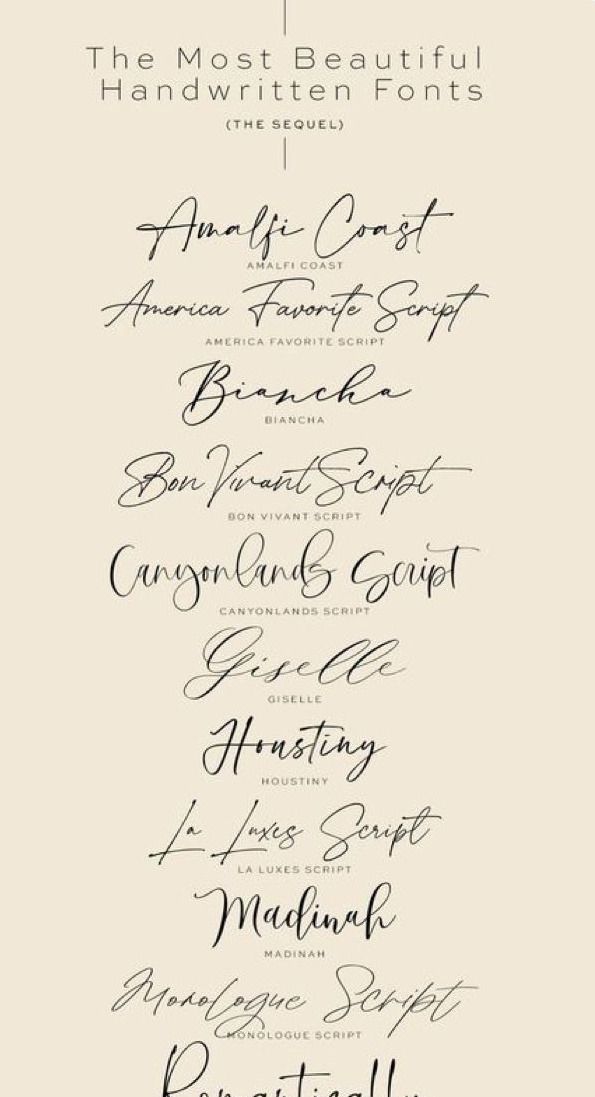 The Most Beautiful
Handwritten Fonts
(THE SEQUEL)
Amalfi Coast
AMALFI COAST
America Favorite Script
AMERICA FAVORITE SCRIPT
Biancha
BIANCHA
Bon Vivant Script
BON VIVANT SCRIPT
Canyonlands Script
CANYONLANDS SCRIPT
Giselle
GISELLE
Houstiny
HOUSTINY
La Luxes Script
LA LUXES SCRIPT
Madinah
MADINAH
Monologue Script
MONOLOGUE SCRIPT
Romantically